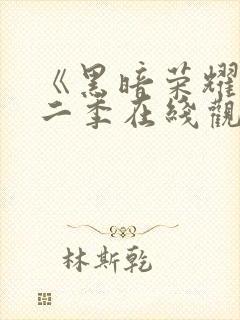 《黑暗荣耀
二季在綫觀
林斯乾